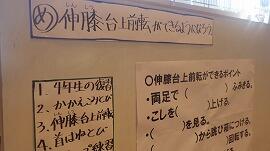 め 伸膝台上前転ができるようになろう
しんしつ
1. 4年生の復習
2. かかえこみとび
3. 伸膝台上前転
4. 首はねとび
〇伸膝台上前転ができるポイント
・両足で( )ふみきる。
・こしを( )上げる。
・( )を見る。
・( )から跳び箱につける。
・( )回転する。